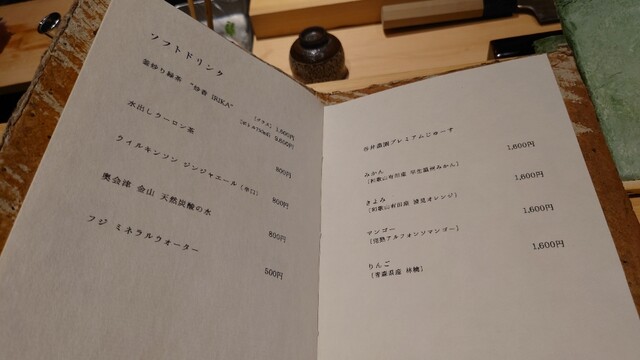 ソフトドリンク
釜炒り緑茶 "炒香 IRIKA"
(グラス) 1,600円
9,600円
水出しウーロン茶
800円
ウィルキンソン ジンジャエール (辛口)
800円
奥会津 金山 天然炭酸の水
800円
フジ ミネラルウオーター
500円
谷井農園プレミアムじゅーす
みかん
1,600円
(和歌山有田産 早生温州みかん)
きよみ
1,600円
(和歌山有田産 清見オレンジ)
マンゴー
1,600円
(完熟アルフォンソマンゴー)
りんご
1,600円
(青森県産 林檎)